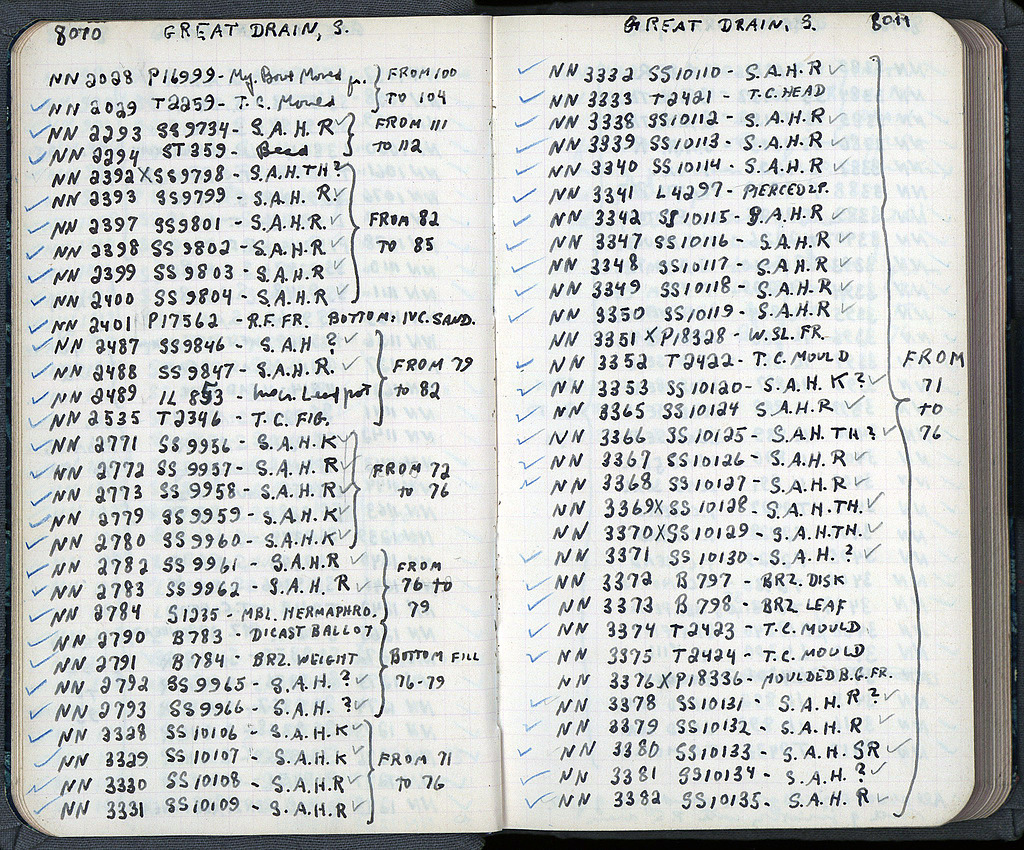 8010 GREAT DRAIN, S.
NN 2028 P16999 - My. Bowl Moned fr. FROM 100
NN 2029 T2259 - T.C. Moned TO 104
NN 2293 SS9734 - S.A.H.R FROM 111
NN 2294 ST359 - Bead to 112
NN 2392X SS9798 - S.A.H.TH?
NN 2393 SS9799 - S.A.H.R.
NN 2397 SS9801 - S.A.H.R. FROM 82
NN 2398 SS9802 - S.A.H.R. TO 85
NN 2399 SS9803 - S.A.H.R
NN 2400 SS9804 - S.A.H.R
NN 2401 P17562 - R.F. FR. BOTTOM: IVC. SAND.
NN 2487 SS9846 - S.A.H ?
NN 2488 SS9847 - S.A.H.R. FROM 79
NN 2489 IL 853 - Inscr. Lead pot to 82
NN 2535 T2346 - T.C. FIG.
NN 2771 SS9956 - S.A.H.K
NN 2772 SS9957 - S.A.H.R FROM 72
NN 2773 SS9958 - S.A.H.R. to 76
NN 2779 SS9959 - S.A.H.K
NN 2780 SS9960 - S.A.H.K
NN 2782 SS9961 - S.A.H.R FROM
NN 2783 SS9962 - S.A.H.R 76 to
NN 2784 S1235 - MBL. HERMAPHRO. 79
NN 2790 B783 - DICAST BALLOT
NN 2791 B784 - BRZ. WEIGHT BOTTOM FILL
NN 2792 SS9965 - S.A.H. ? 76-79
NN 2793 SS9966 - S.A.H. ?
NN 3328 SS10106 - S.A.H.K
NN 3329 SS10107 - S.A.H.K FROM 71
NN 3330 SS10108 - S.A.H.R to 76
NN 3331 SS10109 - S.A.H.R
GREAT DRAIN, S. 8011
NN 3332 SS10110 - S.A.H.R
NN 3333 T2421 - T.C. HEAD
NN 3338 SS10112 - S.A.H.R
NN 3339 SS10113 - S.A.H.R
NN 3340 SS10114 - S.A.H.R
NN 3341 L4297 - PIERCED LP.
NN 3342 SS10115 - S.A.H.R
NN 3347 SS10116 - S.A.H.R
NN 3348 SS10117 - S.A.H.R
NN 3349 SS10118 - S.A.H.R
NN 3350 SS10119 - S.A.H.R
NN 3351 X P18328 - W.SL. FR.
NN 3352 T2422 - T.C. MOULD FROM
NN 3353 SS10120 - S.A.H.K? 71
NN 3365 SS10124 S.A.H.R to
NN 3366 SS10125 - S.A.H.TH? 76
NN 3367 SS10126 - S.A.H.R
NN 3368 SS10127 - S.A.H.R
NN 3369X SS10128 - S.A.H.TH.
NN 3370X SS10129 - S.A.H.TH.
NN 3371 SS10130 - S.A.H. ?
NN 3372 B797 - BRZ. DISK
NN 3373 B798 - BRZ LEAF
NN 3374 T2423 - T.C. MOULD
NN 3375 T2424 - T.C. MOULD
NN 3376X P18336 - MOULDED B.G. FR.
NN 3378 SS10131 - S.A.H.R?
NN 3379 SS10132 - S.A.H.R
NN 3380 SS10133 - S.A.H.SR
NN 3381 SS10134 - S.A.H. ?
NN 3382 SS10135 - S.A.H.R